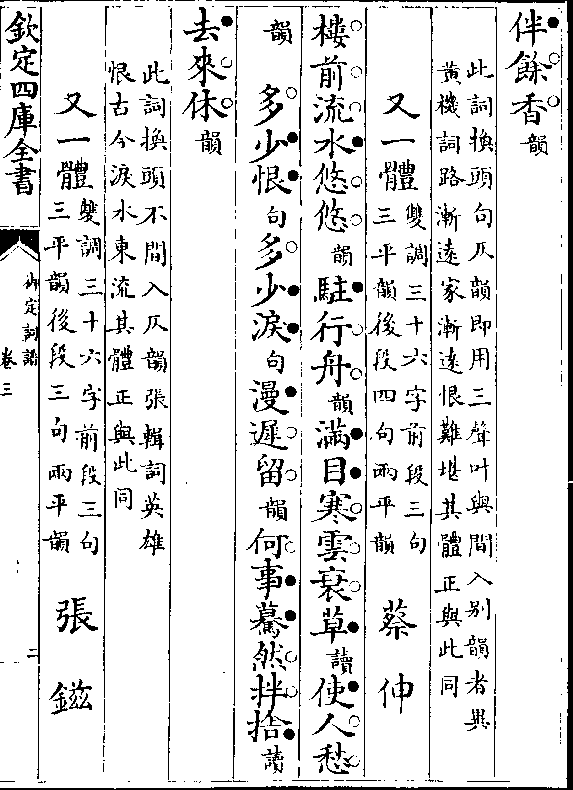 伴餘香韻
此詞換頭句仄韻即用三聲叶與間入别韻者異
黃機詞路漸遠家漸遠恨難堪其體正與此同
又一體雙調三十六字前段三句三平韻後段四句兩平韻 蔡伸
樓前流水悠悠韻駐行舟韻滿目寒雲衰草讀使人愁
韻 多少恨句多少淚句漫遲留韻何事驀然拌捨讀
去來休韻
此詞換頭不間入仄韻張輯詞英雄
恨古今淚水東流其體正與此同
又一體雙調三十六字前段三句三平韻後段三句兩平韻 張鎡
欽定四庫全書
御定詞譜
卷三
二